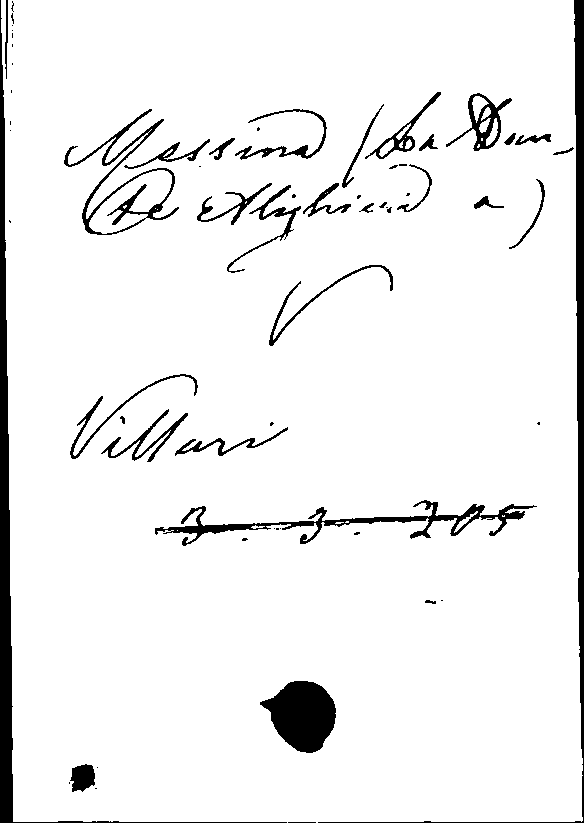 Messina (La Dan-
te Alighieri a)
V
Villari
3. 3. 205